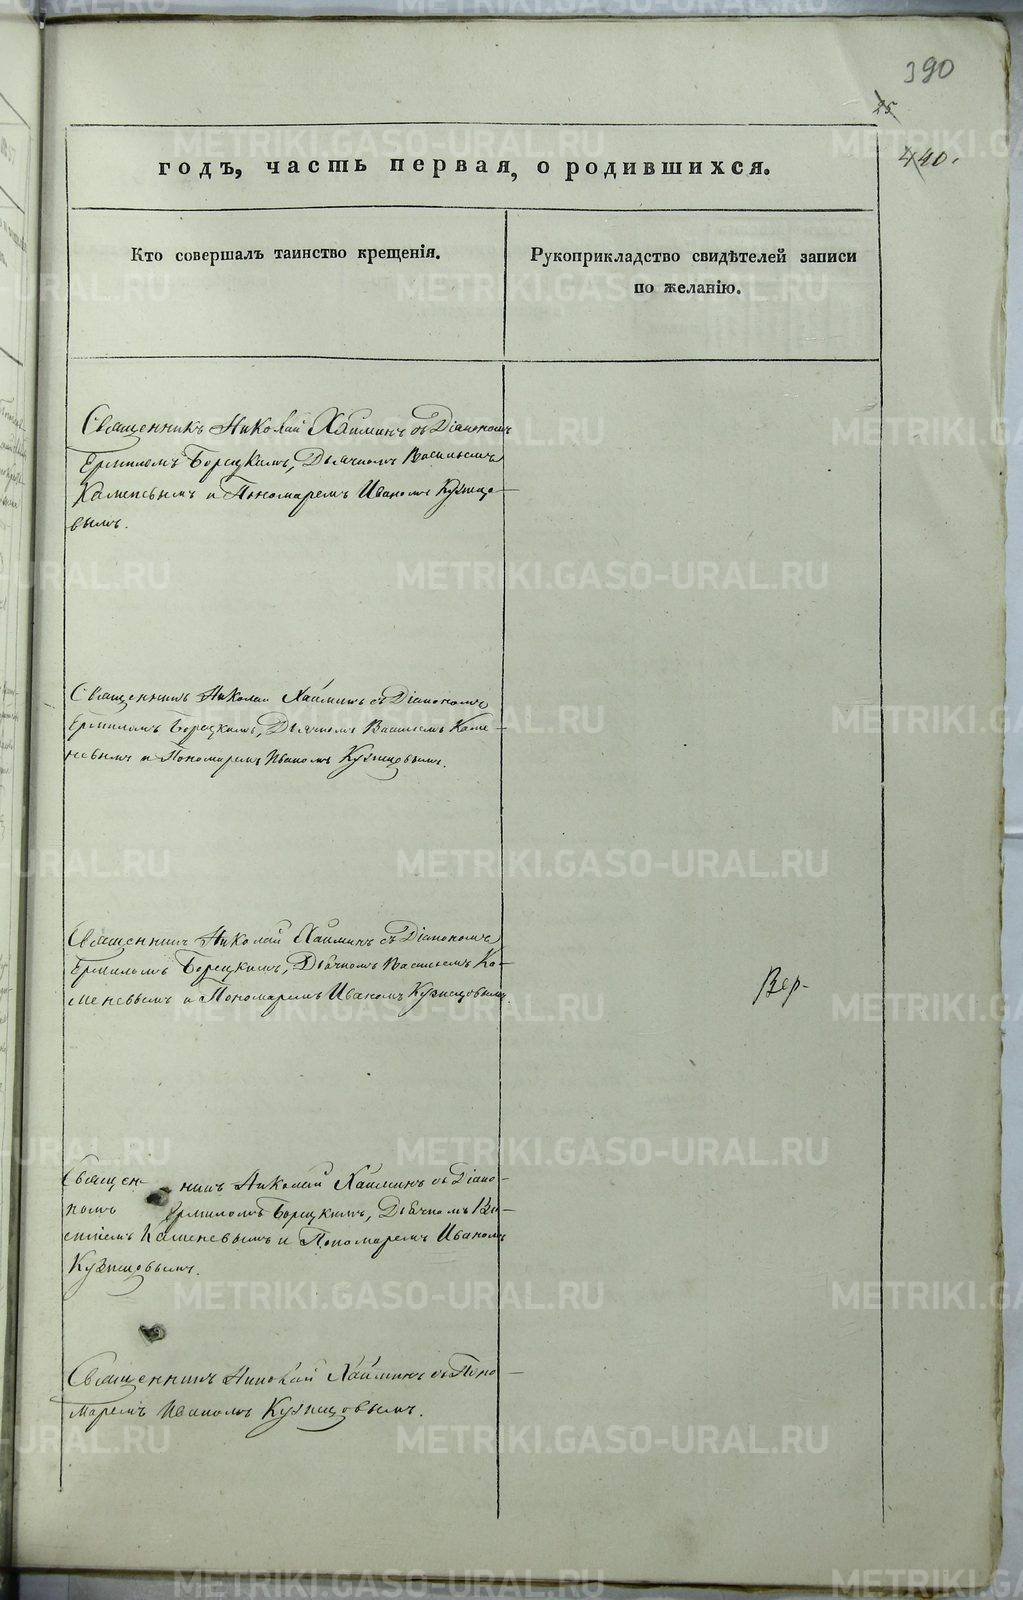 390
25
440.
годъ, часть первая, о родившихся.
Кто совершалъ таинство крещенія.
Рукоприкладство свидѣтелей записи
по желанію.
Священникъ Николай Хлминъ съ Діакономъ
Ермиломъ Борецкимъ, Дьячкомъ Васильемъ
Каменевымъ и Пономаремъ Иваномъ Кузнецо-
вымъ.
Священникъ Николай Хайминъ съ Діакономъ
Ермиломъ Борецкимъ, Дьячкомъ Васильемъ Каме-
невымъ и Пономаремъ Иваномъ Кузнецовымъ.
Священникъ Николай Хайминъ съ Діакономъ
Ермиломъ Борецкимъ, Дьячкомъ Васильемъ Ка-
меневымъ и Пономаремъ Иваномъ Кузнецовымъ.
Вер-
Священ- никъ Николай Хайминъ съ Діако-
номъ Ермиломъ Борецкимъ, Дьячкомъ Ва-
сильемъ Каменевымъ и Пономаремъ Иваномъ
Кузнецовымъ.
Священникъ Николай Хайминъ съ Поно-
маремъ Иваномъ Кузнецовымъ.
METRIKI.GASO-URAL.RU